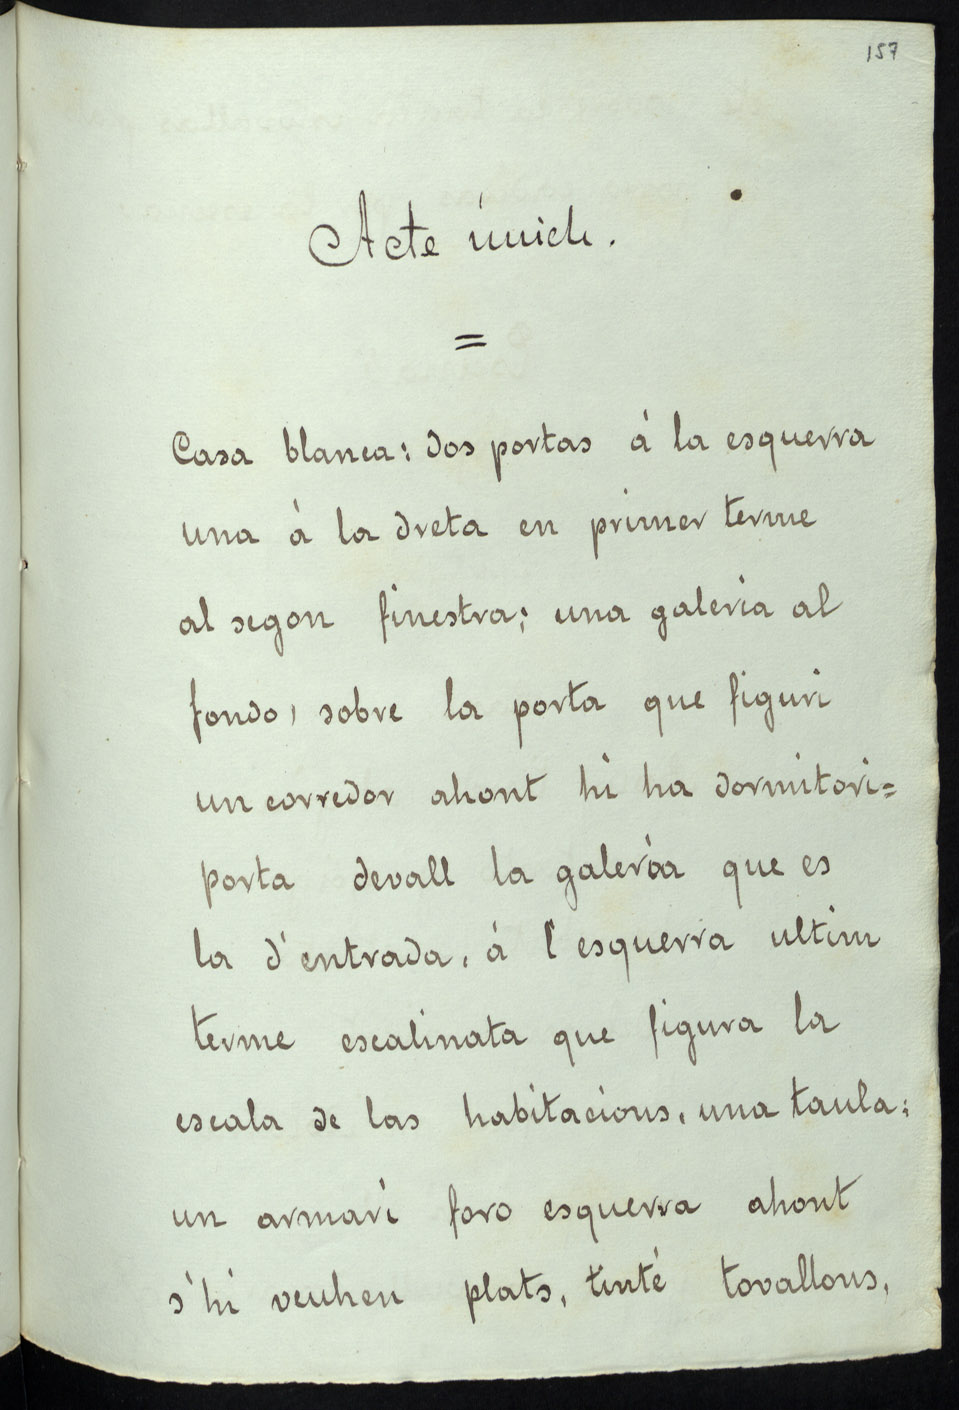 157
Acte únich.
=
Casa blanca: dos portas á la esquerra
una á la dreta en primer terme
al segon finestra; una galeria al
fondo, sobre la porta que figuri
un corredor ahont hi ha dormitori=
porta devall la galería que es
la d'entrada, á l'esquerra ultim
terme escalinata que figura la
escala de las habitacions, una taula;
un armari foro esquerra ahont
s'hi veuhen plats, tinté tovallons,